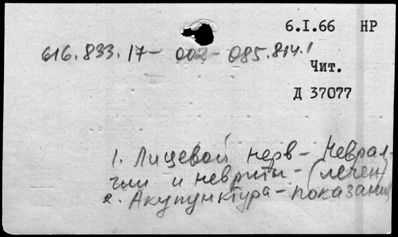 6.I.66 НР
616.833.17-002-085.814.1
Чит.
Д 37077
1. Лицевой нерв - Неврал-
гии и невриты - (лечен)
2. Акупунктура - показания